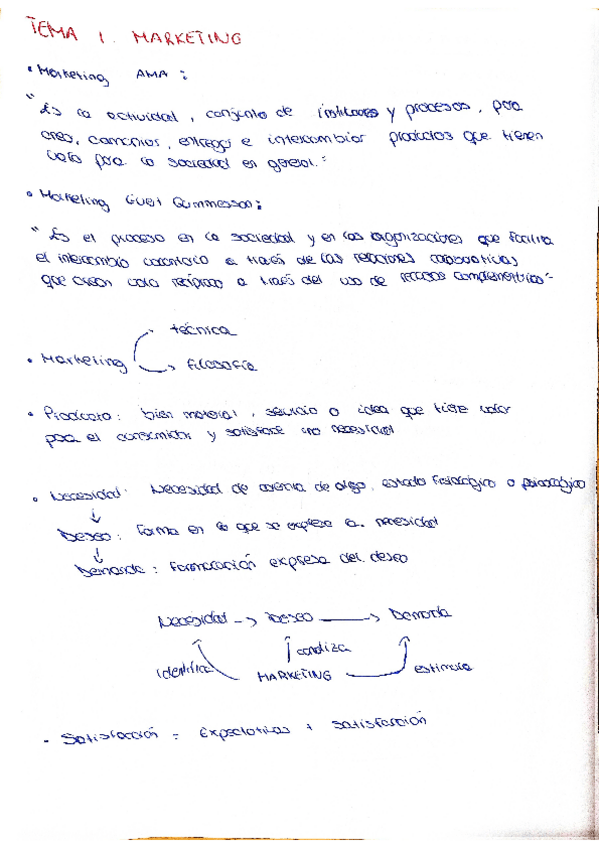 TEMA 1. MARKETING
• Marketing AMA:
"Es la actividad, conjunto de instituciones y procesos, para
crear, comunicar, entregar e intercambiar productos que tienen
valor para la sociedad en general."
• Marketing Evert Gummesson:
"Es el proceso en la sociedad y en las organizaciones que facilita
el intercambio voluntario a través de las relaciones colaborativas
que crean valor recíproco a través del uso de recursos complementarios"
técnica
• Marketing
filosofía
• Producto: bien material, servicio o idea que tiene valor
para el consumidor y satisface una necesidad
• Necesidad: Necesidad de carencia de algo, estado fisiológico o psicológico
↓
Deseo: Forma en la que se expresa la necesidad
↓
Demanda: Formulación expresa del deseo
Necesidad → Deseo → Demanda
identifica canaliza estimula
MARKETING
- Satisfacción = Expectativas + satisfacción